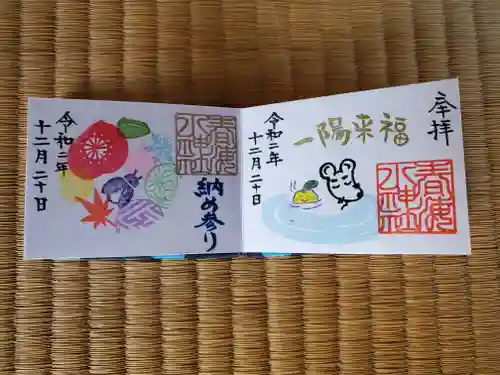 奉拝
一陽来福
令和二年
十二月二十日
春海
小社
春海
小社
納め参り
令和二年
十二月二十日